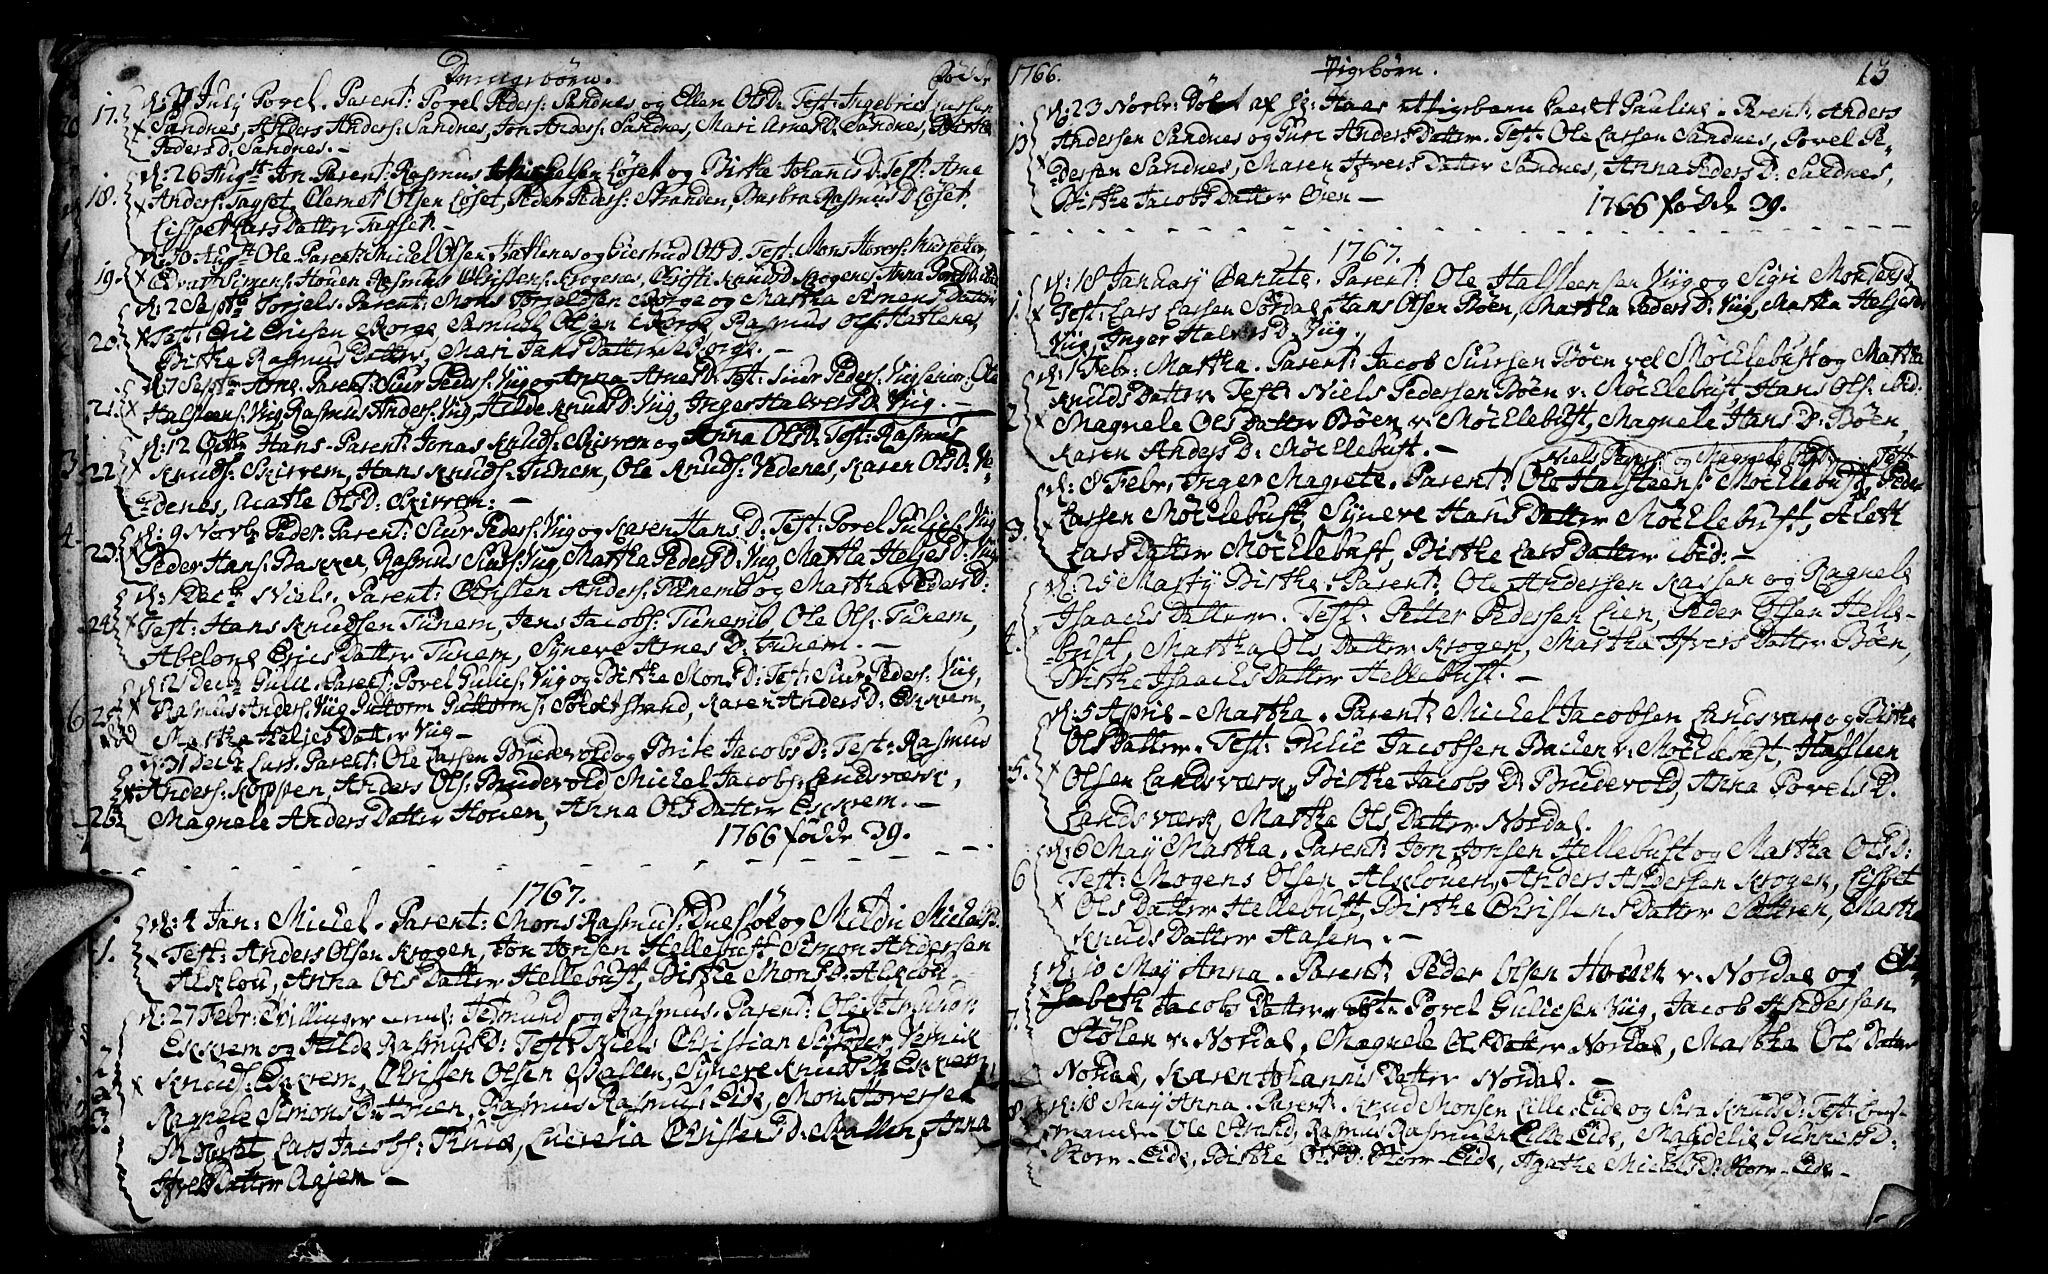 Drengebørn. Fødde
17. d: July Povel. Parent: Povel Peders: Sandnes og Ellen OlsD. Test: Ingebrict
Sandnes, Anders Anders: Sandnes, Jon Anders: Sandnes, Mari ArnesD. Sandnes, Birthe
PedersD. Sandnes. —
18. d: 26 Aug Jon Parent: Rasmus Michelsen Løset og Birthe JohannisD. Test: Arne
Anders: Tagset, Clemet Olsen Løset, Peder Peders: Stranden, Barbra RasmusD Løset.
Lisspet LarsDatter Tagset. —
19. Aug Ole Parent: Michel Olsen Hatlenes og Giertrud OlsD. Test: Mons
Houen Rasmus Christens: Krogenæs, Christi KnudsD Krogenes, Anna
20. d: 2 Sept Torjels. Parent: Mons Torjelsen Skorge og Martha SimensDatter
Test: Eric Ericsen Skorge Samuel Olsen Skorge Rasmus Ols: Hatlenes
Birthe RasmusDatter, Mari JansDatter Skorge. —
21. d: 7 Sept Arne. Parent: Siur Peders: Viig og Anna ArnesD: Test: Siur Peders: Viig senior, Ole
Halsteens: Viig Rasmus Anders: Viig, Hilde KnudsD: Viig, Inger HalversD. Viig. —
22. d: 12 Octb Hans. Parent: Jonas Knuds: Skirrem og Anna OlsD. Test: Rasmus
Knuds: Skirrem, Hans Knuds: Tunem, Ole Knuds: Vedenes, Karen OlsD: Ve-
denes, Marthe OlsD: Skirrem. —
23. d: 9 Novb Peder. Parent: Siur Peders: Viig og Karen HansD: Test: Povel Gulics: Viig
Peder Hans: Bakken, Rasmus Siurs: Viig, Martha PedersD: Viig, Martha HeljesD: Viig
24. d: 1 Dec Niels. Parent: Christen Anders: Tunem og Martha PedersD:
Test: Hans Knudsen Tunem, Jens Jacobs: Tunem Ole Ols: Tunem,
Abelone EricsDatter Tunem, Syneve ArnesD: Tunem. —
25. d: 21 Dec Gulle. Parent: Povel Gulics: Viig og Birthe MonsD: Test: Siur Peders: Viig,
Rasmus Anders: Viig Guttorm Guttorms: Skotstrand, Karen AndersD: Eskrem,
Martha HeljesDatter Viig —
26. d: 31 Dec Lars. Parent: Ole Larsen Brudevold og Brite JacobsD: Test: Rasmus
Anders: Koppen, Anders Ols: Brudevold, Michel Jacobs: Landsværk,
Magnele AndersDatter Houen, Anna OlsDatter Eskrem. —
1766 fødde 39.
1767.
1. d: 4 Jan: Michel. Parent: Mons Rasmus: og Mildri MichelsD.
Test: Anders Olsen Krogen, Jon Jonsen Hellebust Simon Andersen
Alsklou, Anna OlsDatter Hellebust, Birthe MonsD: Alsklou
2 3. d: 27 Febr: Tvillinger Osmund og Rasmus. Parent: Ole
Eskrem og Hilde RasmusD: Test: Niels Christian Schrøder,
Knuds: Eskrem, Christen Olsen Skallen, Syneve KnudsD: Eskrem
Ragnele SimonsD: Houen, Rasmus Rasmus: Eide, Mons Iversen
Lars Jacobs: Lucretia ChristensD: Skallen, Anna
IversDatter Aasen —
1766. Pigebørn. 13
13 d: 23 Novbr: Døbt af Hr: Haas et Pigebarn kaldet Pauline. Parent: Anders
Andersen Sandnes og Guri AndersDatter. Test: Ole Larsen Sandnes, Povel Pe-
dersen Sandnes, Maren IversDatter Sandnes, Anna PedersD. Sandnes,
Birthe JacobsDatter Øien —
1766 fødde 39.
1767.
1. d: 18 January Benute. Parent: Ole Halsteensen Viig og Sigri MonsesD:
Test: Lars Larsen Nordal, Hans Olsen Bøen, Martha PedersD: Viig, Martha HeljesD:
Viig, Inger HalversD. Viig.
2 d: 1 Febr: Martha. Parent: Jacob Siursen Bøen vel Møcklebust og Martha
KnudsDatter Test: Niels Pedersen Bøen v: Møcklebust, Hans Ols: ibid.
Magnele OlsDatter Bøen v: Møcklebust, Magnele HansD: Bøen,
Karen AndersD: Møcklebust. —
Niels Peders: og Magnele Test:
3. d: 8 Febr, Inger Magrete. Parent: Ole Halsteens: Møcklebust, Peder
Larsen Møcklebust, Syneve HansDatter Møcklebust, Alett
LarsDatter Møcklebust, Birthe LarsDatter ibid: —
4. d: 25 Marty Birthe. Parent: Ole Andersen Kassen og Ragnele
IsaachsDatter. Test: Petter Pedersen Lien, Peder Olsen Helle-
bust, Martha OlsDatter Krogen, Martha IversDatter Bøen,
Birthe IsaachsDatter Hellebust. —
5. d: 5 April — Martha. Parent: Michel Jacobsen Landsværk og Birthe
OlsDatter. Test: Gulic Jacobsen Backen v: Møcklebust, Halsteen
Olsen Landsværk, Birthe JacobsD: Brudevold, Anna PovelsD.
Landsværk, Martha OlsDatter Nordal.
6 d: 6 May Martha. Parent: Jon Jonsen Hellebust og Martha OlsD:
Test: Mogens Olsen Alsklouen, Anders Andersen Krogen, Lisset
OlsDatter Hellebust, Birthe ChristensDatter Sættren, Martha
KnudsDatter Aasen. —
7. d: 10 May Anna. Parent: Peder Olsen Houen v: Nordal og Eli-
sabeth JacobsDatter Test: Povel Gulicsen Viig, Jacob Andersen
Stølen v: Nordal, Magnele OlsDatter Nordal, Martha OlsDatter
Nordal, Karen JohannisDatter Nordal. —
8. d: 18 May Anna. Parent: Knud Monsen Lille-Eide og Sara KnudsD: Test: Lens-
manden Ole Strand, Rasmus Rasmusen Lille Eide, Magdelie GunnersD:
Storr-Eide, Birthe OlsD: Storr-Eide, Agathe MichelsD: Storr-Eide —